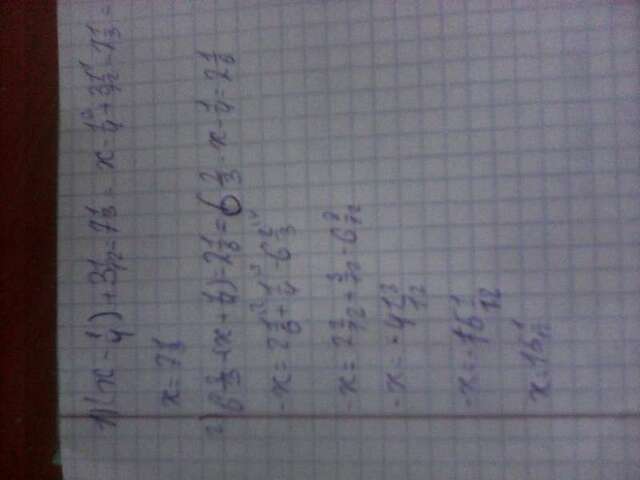 1) (x - 1/4) + 3 1/12 = 7 1/3 = x - 1/4 + 3 1/12 = 7 1/3 =
x = 7
2) 6 2/3 - (x + 1/4) = 2 1/6 = 6 2/3 - x - 1/4 = 2 1/6
-x = 2 1/6 + 1/4 - 6 2/3
-x = 2 2/12 + 3/12 - 6 8/12
-x = -4
-x = -15 1/12
x = 15 1/12